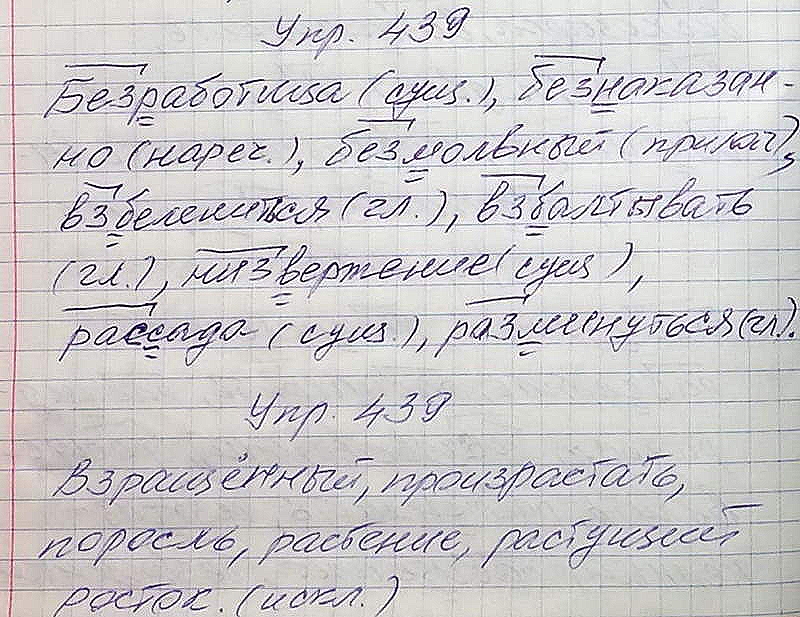 Упр. 439
Безработица (сущ.), безнаказан-
но (нареч.), безмолвный (прилаг),
взбелениться (гл.), взбалтывать
(гл.), низвержение (сущ),
рассада (сущ.), разминуться (гл.).
Упр. 439
Взращённый, произрастать,
поросль, растение, растущий
росток. (искл.)